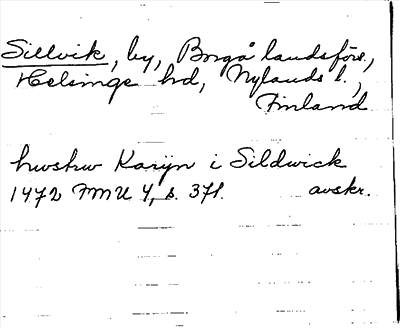 Sillvik, by, Borgå landsförs.,
Helsinge hd, Nylands l.,
Finland
hwskw Karijn i Sildwick
1472 FMU 4, s. 371. avskr.